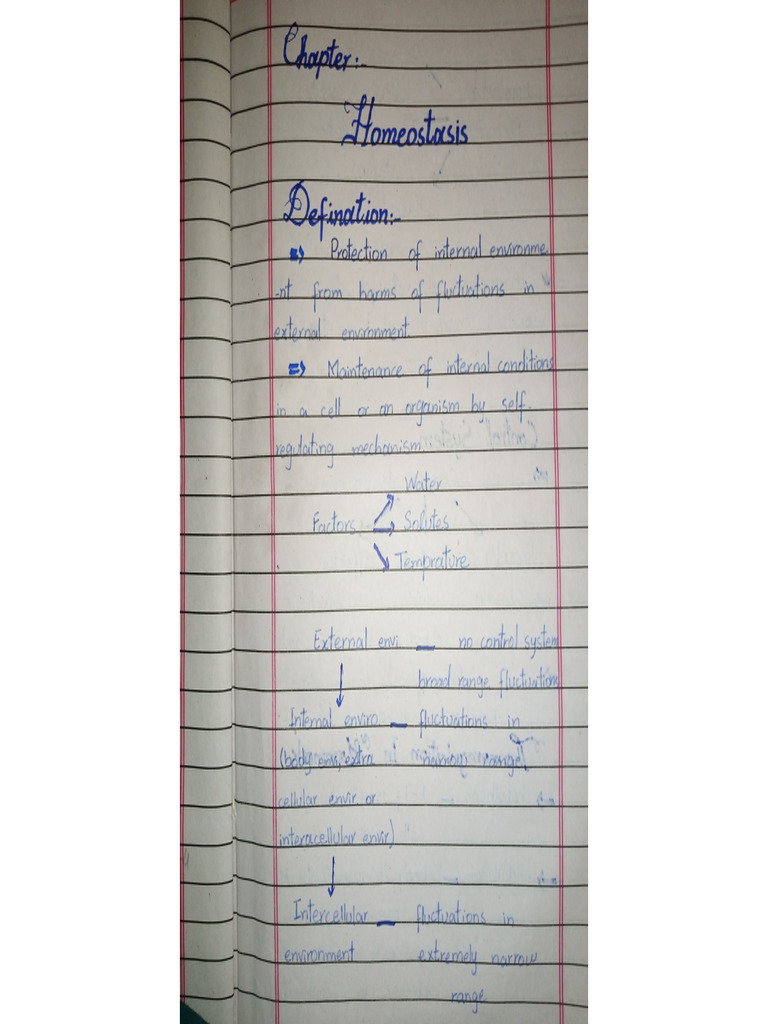 Chapter:-
Homeostasis
Defination:-
⇒ Protection of internal environme
-nt from harms of fluctuations in
external environment.
⇒ Maintenance of internal conditions
in a cell or an organism by self-
regulating mechanism.
Water
Factors → Solutes
Temprature
External envi. — no control system
broad range fluctuations
Internal enviro. — fluctuations in
(body envi, extra narrow range
cellular envir. or
interacellular envir)
Intercellular — fluctuations in
environment extremely narrow
range